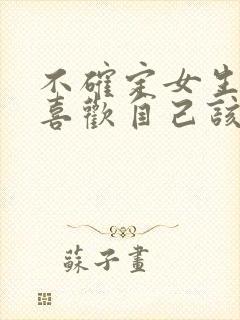 不確定女生
喜歡自己該
蘇子畫